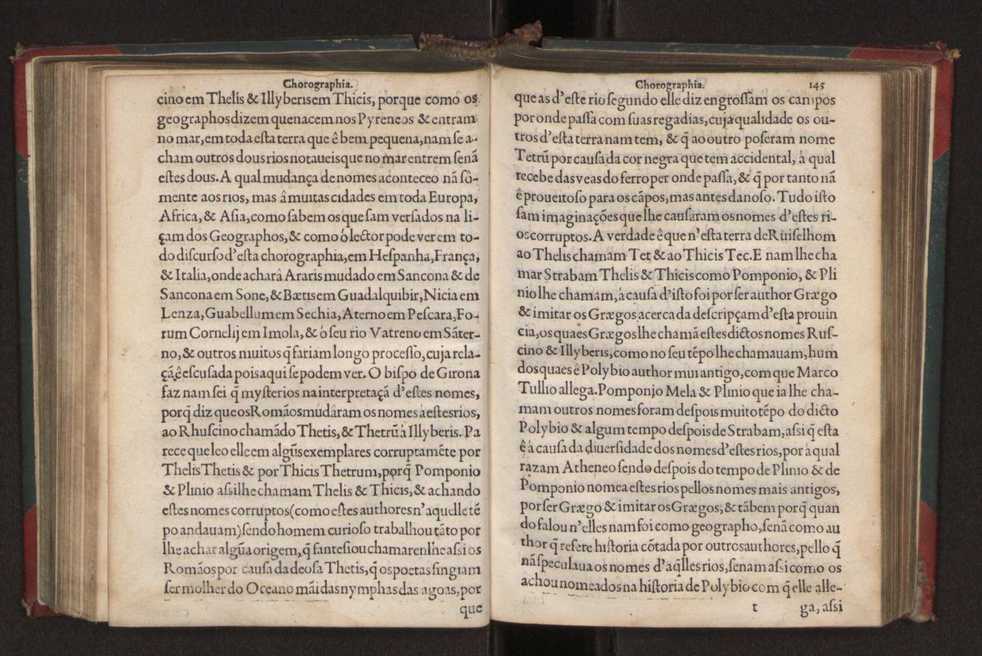 Chorographia.
cino em Thelis & Illyberis em Thicis, porque como os
geographos dizem que nacem nos Pyreneos & entram
no mar, em toda esta terra que ê bem pequena, nam se a-
cham outros dous rios notaueis que no mar entrem senã
estes dous. A qual mudança de nomes aconteceo nã sô-
mente aos rios, mas â muitas cidades em toda Europa,
Africa, & Asia, como sabem os que sam versados na li-
çam dos Geographos, & como ó lector pode ver em to-
do discurso d'esta chorographia, em Hespanha, França,
& Italia, onde achará Araris mudado em Sancona & de
Sancona em Sone, & Bætis em Guadalquibir, Nicia em
Lenza, Guabellum em Sechia, Aterno em Pescara, Fo-
rum Cornelij em Imola, & ó seu rio Vatreno em Sãter-
no, & outros muitos q̃ fariam longo processo, cuja rela-
çã, ê escusada pois aqui se podem ver. O bispo de Girona
faz nam sei q̃ mysterios na interpretaçã d'estes nomes,
porq̃ diz que os Romãos mudaram os nomes à estes rios,
ao Rhuscino chamãdo Thetis, & Thetrũ à Illyberis. Pa
rece que leo elle em algũs exemplares corruptamẽte por
Thelis Thetis & por Thicis Thetrum, porq̃ Pomponio
& Plinio assi lhe chamam Thelis & Thicis, & achando
estes nomes corruptos (como estes authores n'aquelle tẽ
po andauam) sendo homem curioso trabalhou tãto por
lhe achar algũa origem, q̃ fantesiou chamarenlhe assi os
Romãos por causa da deosa Thetis, q̃ os poetas fingiam
ser molher do Oceano mãi das nymphas das agoas, por
que
Chorographia. 145
que as d'este rio segundo elle diz engrossam os campos
por onde passa com suas regadias, cuja qualidade os ou-
tros d'esta terra nam tem, & q̃ ao outro poseram nome
Tetrũ por causa da cor negra que tem accidental, à qual
recebe das veas do ferro per onde passa, & q̃ por tanto nã
ê proueitoso para os cãpos, mas antes danoso. Tudo isto
sam imaginações que lhe causaram os nomes d'estes ri-
os corruptos. A verdade ê que n'esta terra de Ruiselhom
ao Thelis chamam Tet & ao Thicis Tec. E nam lhe cha
mar Strabam Thelis & Thicis como Pomponio, & Pli
nio lhe chamam, à causa d'isto foi por ser author Grægo
& imitar os Grægos acerca da descripçam d'esta prouin
cia, os quaes Grægos lhe chamã estes dictos nomes Rus-
cino & Illyberis, como no seu tẽpo lhe chamauam, hum
dos quaes ê Polybio author mui antigo, com que Marco
Tullio allega. Pomponio Mela & Plinio que ia lhe cha-
mam outros nomes foram despois muito tẽpo do dicto
Polybio & algum tempo despois de Strabam, assi q̃ esta
ê à causa da diuersidade dos nomes d'estes rios, por à qual
razam Atheneo sendo despois do tempo de Plinio & de
Pomponio nomea estes rios pellos nomes mais antigos,
por ser Grægo & imitar os Grægos, & tãbem porq̃ quan
do falou n'elles nam foi como geographo, senã como au
thor q̃ refere historia cõtada por outros authores, pello q̃
nã speculaua os nomes d'aq̃lles rios, senam assi como os
achou nomeados na historia de Polybio com q̃ elle alle-
t ga, assi